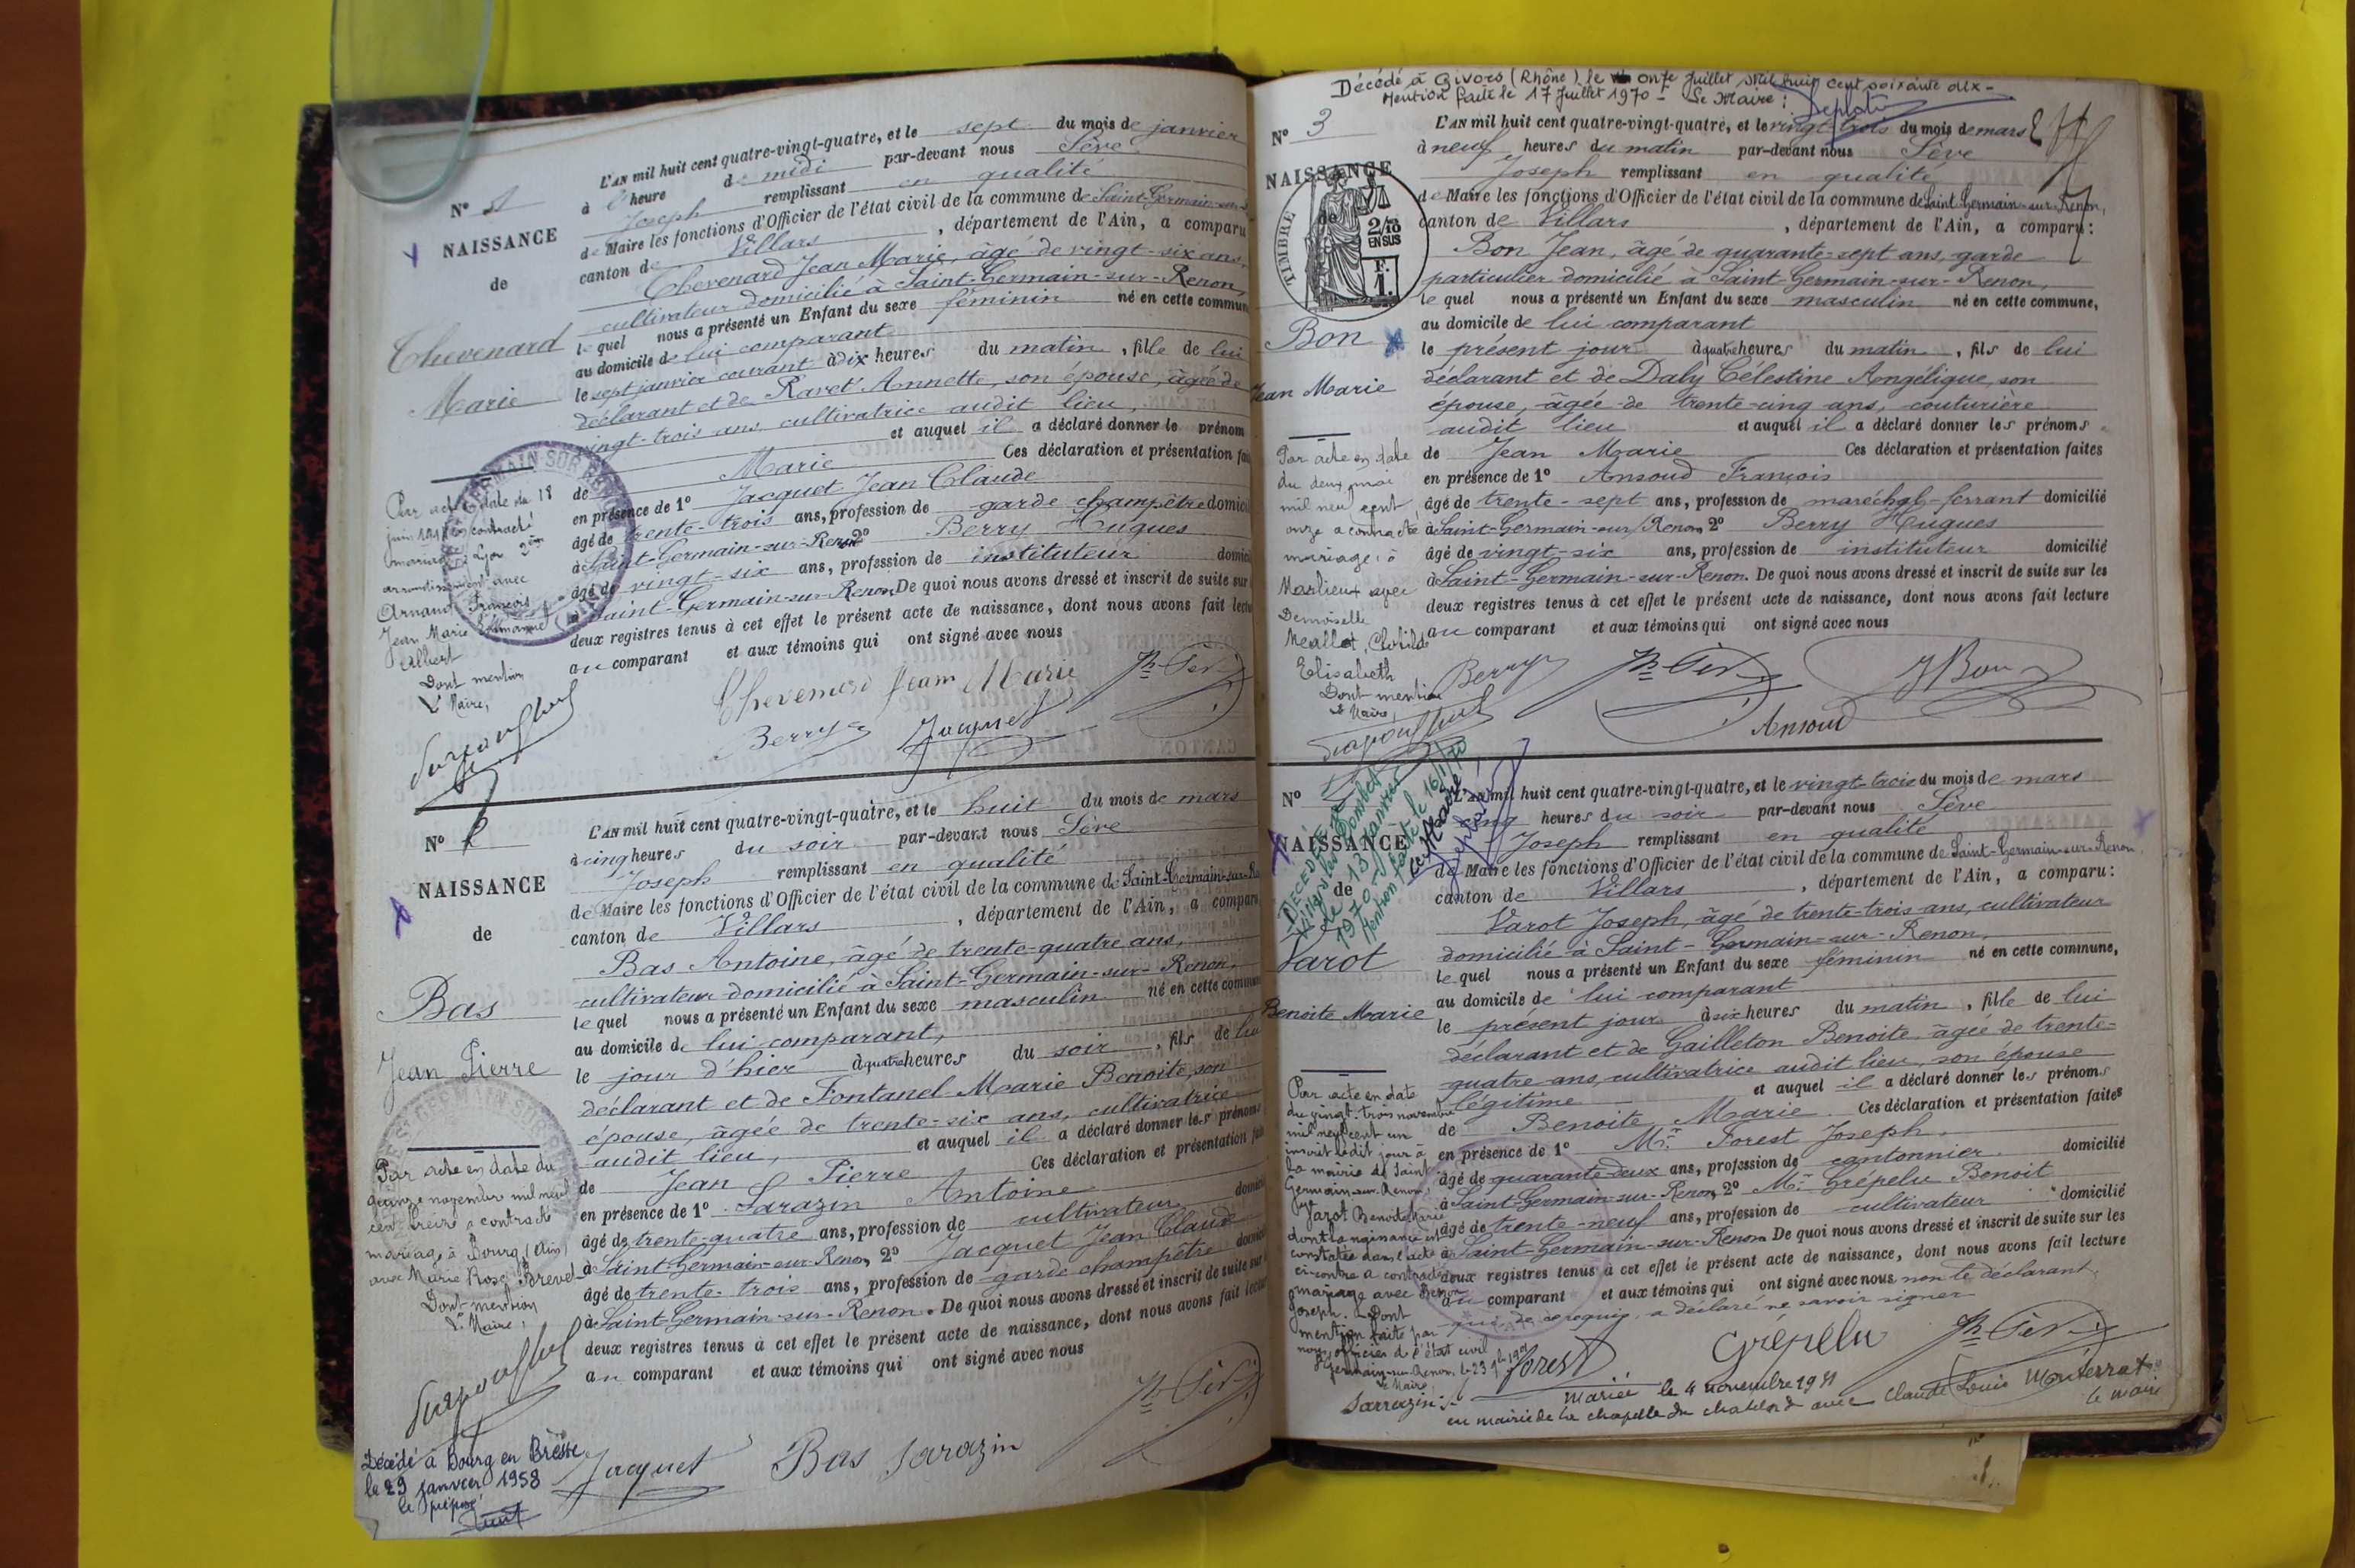 N° 1
NAISSANCE
de
Chevenard
Marie
L'AN mil huit cent quatre-vingt-quatre, et le sept du mois de janvier
à heure de midi par-devant nous Sève
Joseph remplissant en qualité
de Maire les fonctions d'Officier de l'état civil de la commune de Saint-Germain-sur-
canton de Villars, département de l'Ain, a comparu
Chevenard Jean Marie, âgé de vingt-six ans,
cultivateur domicilié à Saint-Germain-sur-Renon,
lequel nous a présenté un Enfant du sexe féminin né en cette commun
au domicile de lui comparant
le sept janvier courant à dix heures du matin, fille de lui
déclarant et de Ravet Annette, son épouse, âgée de
vingt-trois ans cultivatrice audit lieu,
et auquel il a déclaré donner le prénom
de Marie Ces déclaration et présentation fai
en présence de 1° Jacquet Jean Claude
âgé de trente-trois ans, profession de garde champêtre domicil
à Saint-Germain-sur-Renon 2° Berry Hugues
âgé de vingt-six ans, profession de instituteur domici
à Saint-Germain-sur-Renon De quoi nous avons dressé et inscrit de suite sur
deux registres tenus à cet effet le présent acte de naissance, dont nous avons fait lectu
au comparant et aux témoins qui ont signé avec nous
Chevenard Jean Marie
Berry Jacquet
Par acte en date du 18
juin contracté
mariage à Lyon 2ème
arrondissement avec
Arnaud François
Jean Marie Emmanuel
Albert
Dont mention
Le Maire,
N° 2
NAISSANCE
de
Bas
Jean Pierre
L'AN mil huit cent quatre-vingt-quatre, et le huit du mois de mars
à cinq heures du soir par-devant nous Sève
Joseph remplissant en qualité
de Maire les fonctions d'Officier de l'état civil de la commune de Saint-Germain-sur-Re
canton de Villars, département de l'Ain, a comparu
Bas Antoine, âgé de trente-quatre ans,
cultivateur domicilié à Saint-Germain-sur-Renon,
lequel nous a présenté un Enfant du sexe masculin né en cette commun
au domicile de lui comparant,
le jour d'hier à quatre heures du soir, fils de lui
déclarant et de Fontanel Marie Benoite, son
épouse, âgée de trente-six ans, cultivatrice
audit lieu, et auquel il a déclaré donner les prénoms
de Jean Pierre Ces déclaration et présentation fai
en présence de 1° Sarazin Antoine
âgé de trente-quatre ans, profession de cultivateur domici
à Saint-Germain-sur-Renon, 2° Jacquet Jean Claude
âgé de trente-trois ans, profession de garde champêtre domici
à Saint-Germain-sur-Renon. De quoi nous avons dressé et inscrit de suite sur
deux registres tenus à cet effet le présent acte de naissance, dont nous avons fait lectu
au comparant et aux témoins qui ont signé avec nous
Jacquet Bas Sarazin
Par acte en date du
quinze novembre mil neuf
cent treize a contracté
mariage à Bourg (Ain)
avec Marie Rose Brevet
Dont mention
Le Maire,
Décédé à Bourg en Bresse
le 29 janvier 1958
le préposé
Décédé à Givors (Rhône) le onze Juillet Mil huit cent soixante dix -
Mention faite le 17 Juillet 1970 - Le Maire :
N° 3
NAISSANCE
de
TIMBRE
2/10
EN SUS
F.
1.
Bon
Jean Marie
L'AN mil huit cent quatre-vingt-quatre, et le vingt-trois du mois de mars
à neuf heures du matin par-devant nous Sève
Joseph remplissant en qualité
de Maire les fonctions d'Officier de l'état civil de la commune de Saint-Germain-sur-Renon,
canton de Villars, département de l'Ain, a comparu :
Bon Jean, âgé de quarante-sept ans, garde
particulier domicilié à Saint-Germain-sur-Renon,
lequel nous a présenté un Enfant du sexe masculin né en cette commune,
au domicile de lui comparant
le présent jour à quatre heures du matin, fils de lui
déclarant et de Daly Célestine Angélique, son
épouse, âgée de trente-cinq ans, couturière
audit lieu et auquel il a déclaré donner les prénoms
de Jean Marie Ces déclaration et présentation faites
en présence de 1° Ansoud François
âgé de trente-sept ans, profession de maréchal-ferrant domicilié
à Saint-Germain-sur-Renon, 2° Berry Hugues
âgé de vingt-six ans, profession de instituteur domicilié
à Saint-Germain-sur-Renon. De quoi nous avons dressé et inscrit de suite sur les
deux registres tenus à cet effet le présent acte de naissance, dont nous avons fait lecture
au comparant et aux témoins qui ont signé avec nous
Berry JBon
Ansoud
Par acte en date
du deux mai
mil neuf cent
onze a contracté
mariage à
Marlieux avec
Demoiselle
Meallet, Clotilde
Elisabeth
Dont mention
Le Maire,
N°
NAISSANCE
de
DÉCÉDÉE
le 13 janvier
1970
Mention faite le 16/1/70
Le Maire
Varot
Benoite Marie
L'AN mil huit cent quatre-vingt-quatre, et le vingt-trois du mois de mars
cinq heures du soir par-devant nous Sève
Joseph remplissant en qualité
de Maire les fonctions d'Officier de l'état civil de la commune de Saint-Germain-sur-Renon
canton de Villars, département de l'Ain, a comparu :
Varot Joseph, âgé de trente-trois ans, cultivateur
domicilié à Saint-Germain-sur-Renon,
lequel nous a présenté un Enfant du sexe féminin né en cette commune,
au domicile de lui comparant
le présent jour à six heures du matin, fille de lui
déclarant et de Gailleton Benoite âgée de trente-
quatre ans, cultivatrice audit lieu, son épouse
légitime et auquel il a déclaré donner les prénoms
de Benoite Marie. Ces déclaration et présentation faites
en présence de 1° Mr Forest Joseph
âgé de quarante-deux ans, profession de cantonnier domicilié
à Saint-Germain-sur-Renon, 2° Mr Grépelu Benoit
âgé de trente-neuf ans, profession de cultivateur domicilié
à Saint-Germain-sur-Renon De quoi nous avons dressé et inscrit de suite sur les
deux registres tenus à cet effet le présent acte de naissance, dont nous avons fait lecture
au comparant et aux témoins qui ont signé avec nous non le déclarant
qui, de ce requis, a déclaré ne savoir signer
Forest Grépelu
Par acte en date
du vingt-trois novembre
mil neuf cent un
inscrit ledit jour à
la mairie de Saint
Germain-sur-Renon,
Varot Benoite Marie
dont la naissance est
constatée dans l'acte
ci-contre a contracté
mariage avec
Joseph. Dont
mention faite par
nous officier de l'état civil
St Germain-sur-Renon le 23 9bre 1901
Le Maire
Sarrazin
Mariée le 4 novembre 1931
en mairie de la chapelle du chatelard avec Claude Louis Monterrat
le maire